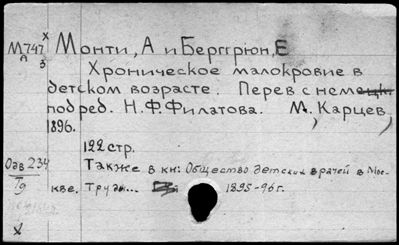 М747 х Монти, А и Берггрюн, Е
А 3
Хроническое малокровие в
детском возрасте. Перев с немецк.
под ред. Н.Ф. Филатова. М, Карцев,
1896.
122 стр.
Одв 234 Также в кн: Общество детских врачей в Мос-
Тд кве. Труды... 1895-96 г.
х